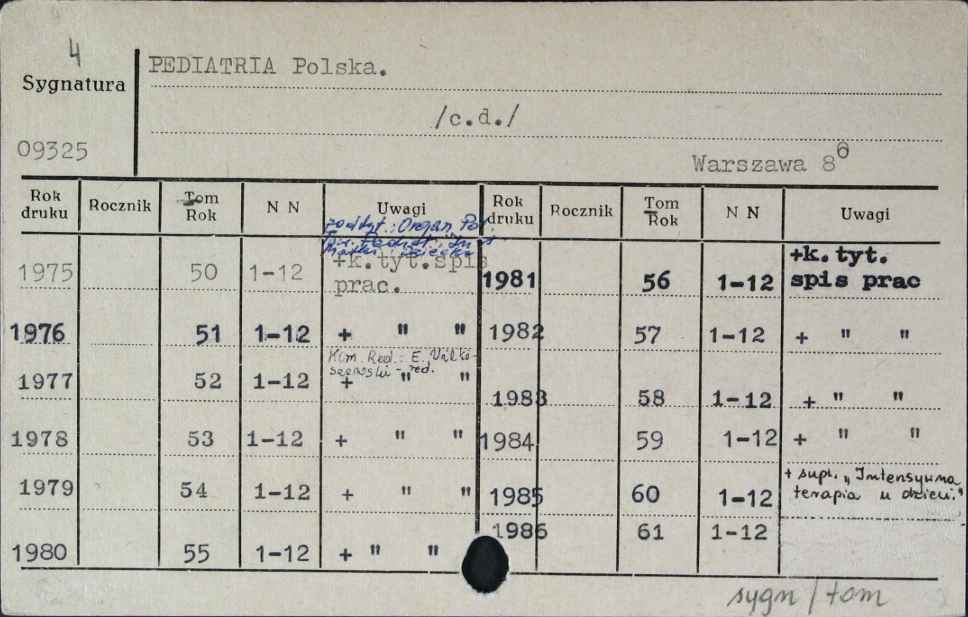 4
Sygnatura
PEDIATRIA Polska.
/c.d./
09325
Warszawa 86
Rok druku Rocznik Tom Rok N N Uwagi Rok druku Rocznik Tom Rok N N Uwagi
podtyt.: Organ Pol.
Matki i Dziecka
1975 50 1-12 +k.tyt.spis prac. 1981 56 1-12 +k. tyt. spis prac
1976 51 1-12 + " " 1982 57 1-12 + " "
Kom. Red.: E. Wilko-
szewski - red.
1977 52 1-12 + " " 1983 58 1-12 + " "
1978 53 1-12 + " " 1984 59 1-12 + " "
1979 54 1-12 + " " 1985 60 1-12 + supl. „Intensywna terapia u dzieci."
1980 55 1-12 + " " 1986 61 1-12
sygn / tom